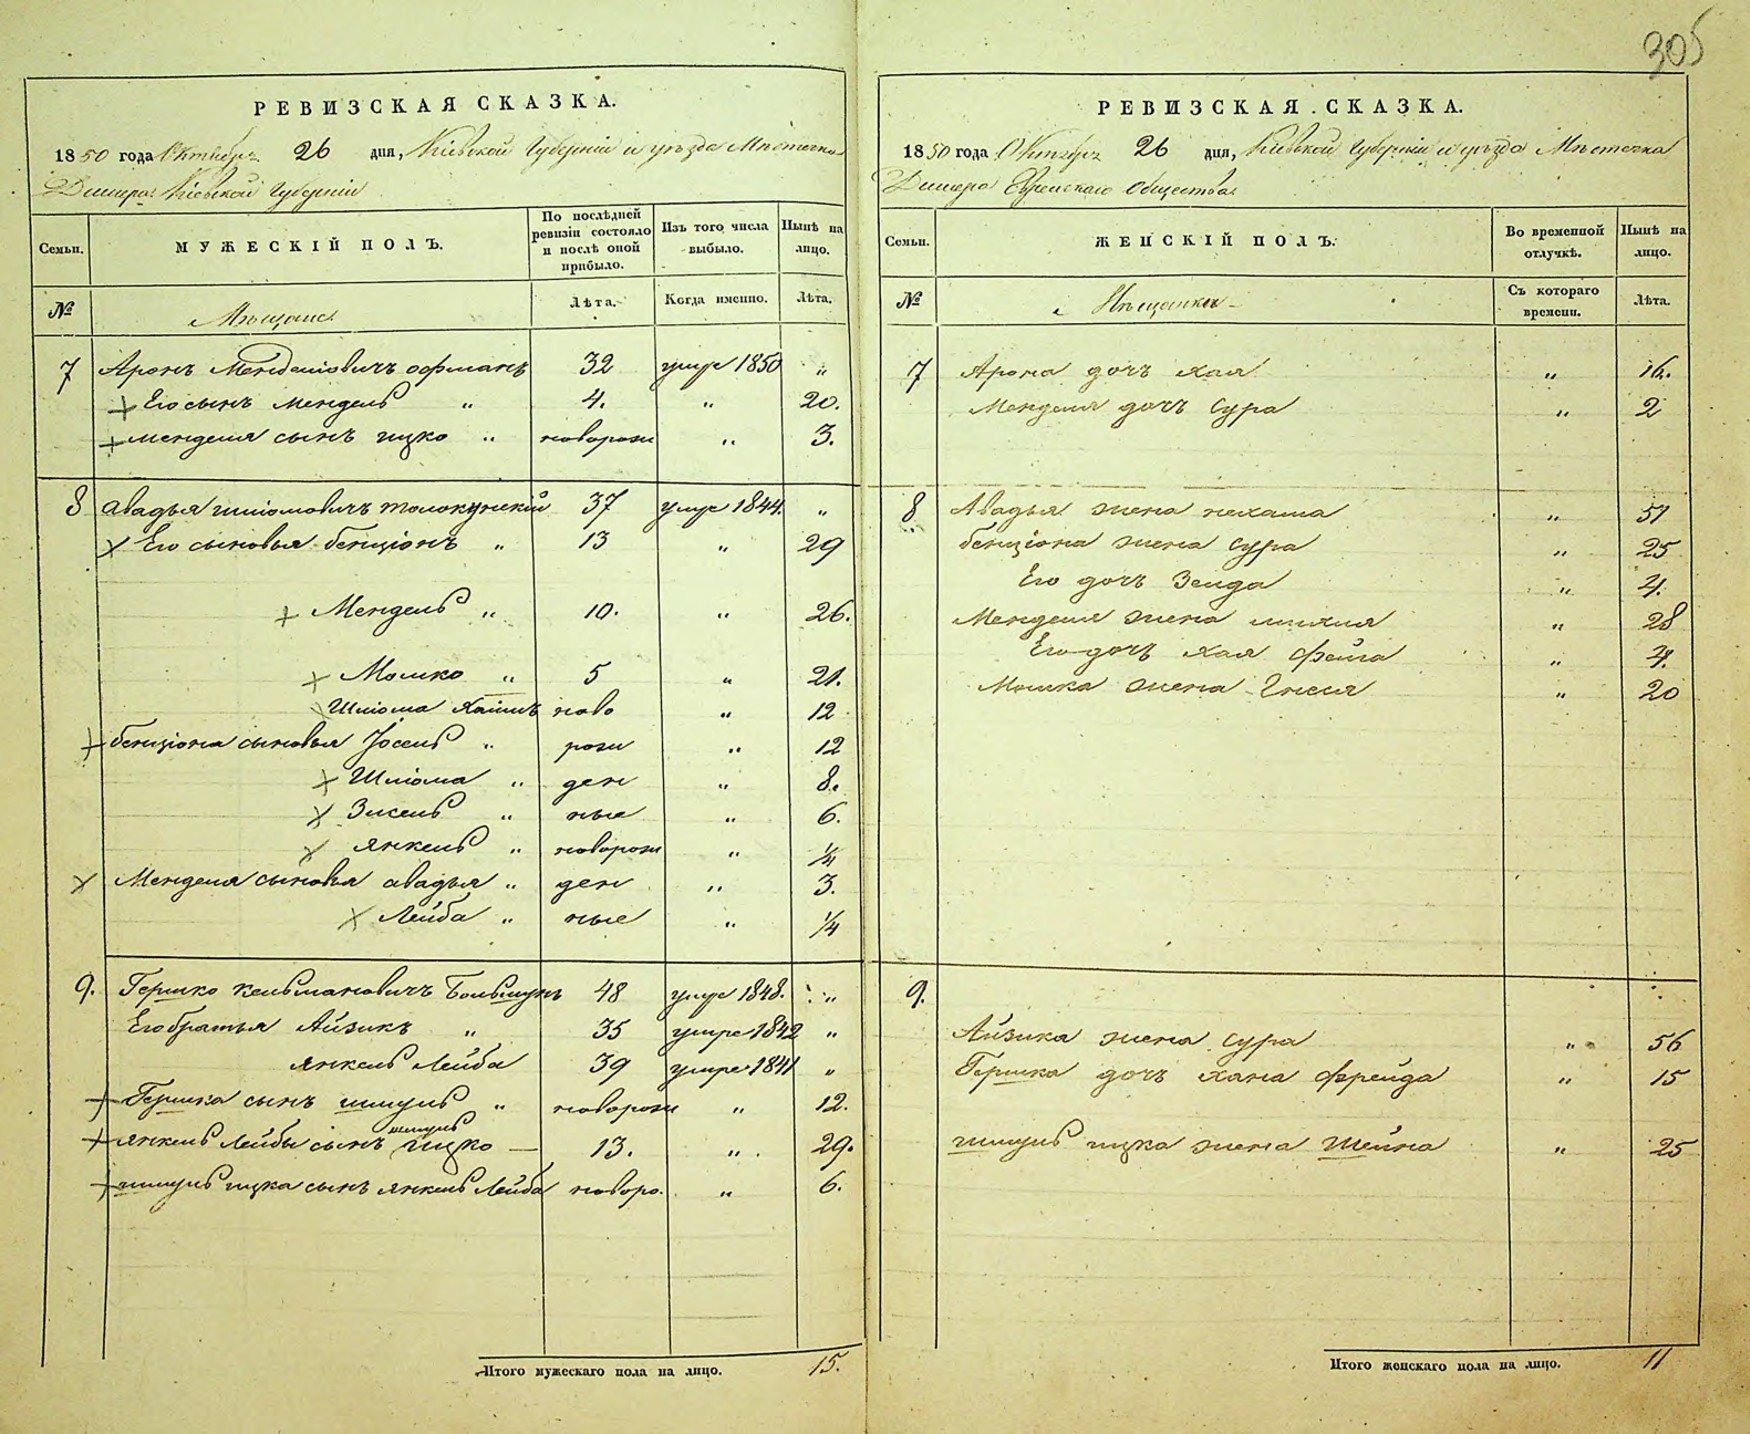 305
РЕВИЗСКАЯ СКАЗКА.
1850 года Октября 26 дня, Кіевской Губерніи и уѣзда Мѣстечка
Димера Кіевской Губерніи
Семьи.
МУЖЕСКІЙ ПОЛЪ.
По послѣдней ревизіи состояло и послѣ оной прибыло.
Изъ того числа выбыло.
Нынѣ на лицо.
№
Мѣщане.
Лѣта.
Когда именно.
Лѣта.
7 Аронъ Менделіовичъ Офманъ 32 умре 1850 "
+ Его сынъ Мендель " 4. " 20.
+ Менделя сынъ Ицко " новорожн " 3.
8 Авадья Шліомовичъ Толокунскій 37 умре 1844. "
х Его сыновья Бенціонъ " 13 " 29
+ Мендель " 10. " 26.
+ Мошко " 5 " 21.
Шліома Хаимъ ново " 12
+ Бенціона сыновья Іосель " рож " 12
+ Шліома " ден " 8.
х Зисель " ные " 6.
х Янкель " новорож " 1/4
х Менделя сыновья Авадья " ден " 3.
х Лейба " ные " 1/4
9. Гершко Кельмановичъ 48 умре 1848. "
Его братья Айзикъ " 35 умре 1842 "
Янкель Лейба 39 умре 1841 "
+ Гершка сынъ Шмуль " новорожн " 12.
шмуль
+ Янкель Лейбы сынъ Ицко — 13. " 29.
+ Шмуль Ицка сынъ Янкель Лейба новоро. " 6.
Итого мужескаго пола на лицо. 15.
РЕВИЗСКАЯ СКАЗКА.
1850 года Октября 26 дня, Кіевской Губерніи и уѣзда Мѣстечка
Димера Еврейскаго Общества.
Семьи.
ЖЕНСКІЙ ПОЛЪ.
Во временной отлучкѣ.
Нынѣ на лицо.
№
Мѣщанки
Съ котораго времени.
Лѣта.
7 Арона дочь Хая " 16.
Менделя дочь Сура " 2
8 Авадья жена Нехама " 57
Бенціона жена Сура " 25
Его дочь Зелда " 4.
Менделя жена " 28
Его дочь Хая Фейга " 4.
Мошка жена Гнеся " 20
9.
Айзика жена Сура " 56
Гершка дочь Хана Фрейда " 15
Шмуль Ицка жена Шейна " 25
Итого женскаго пола на лицо. 11